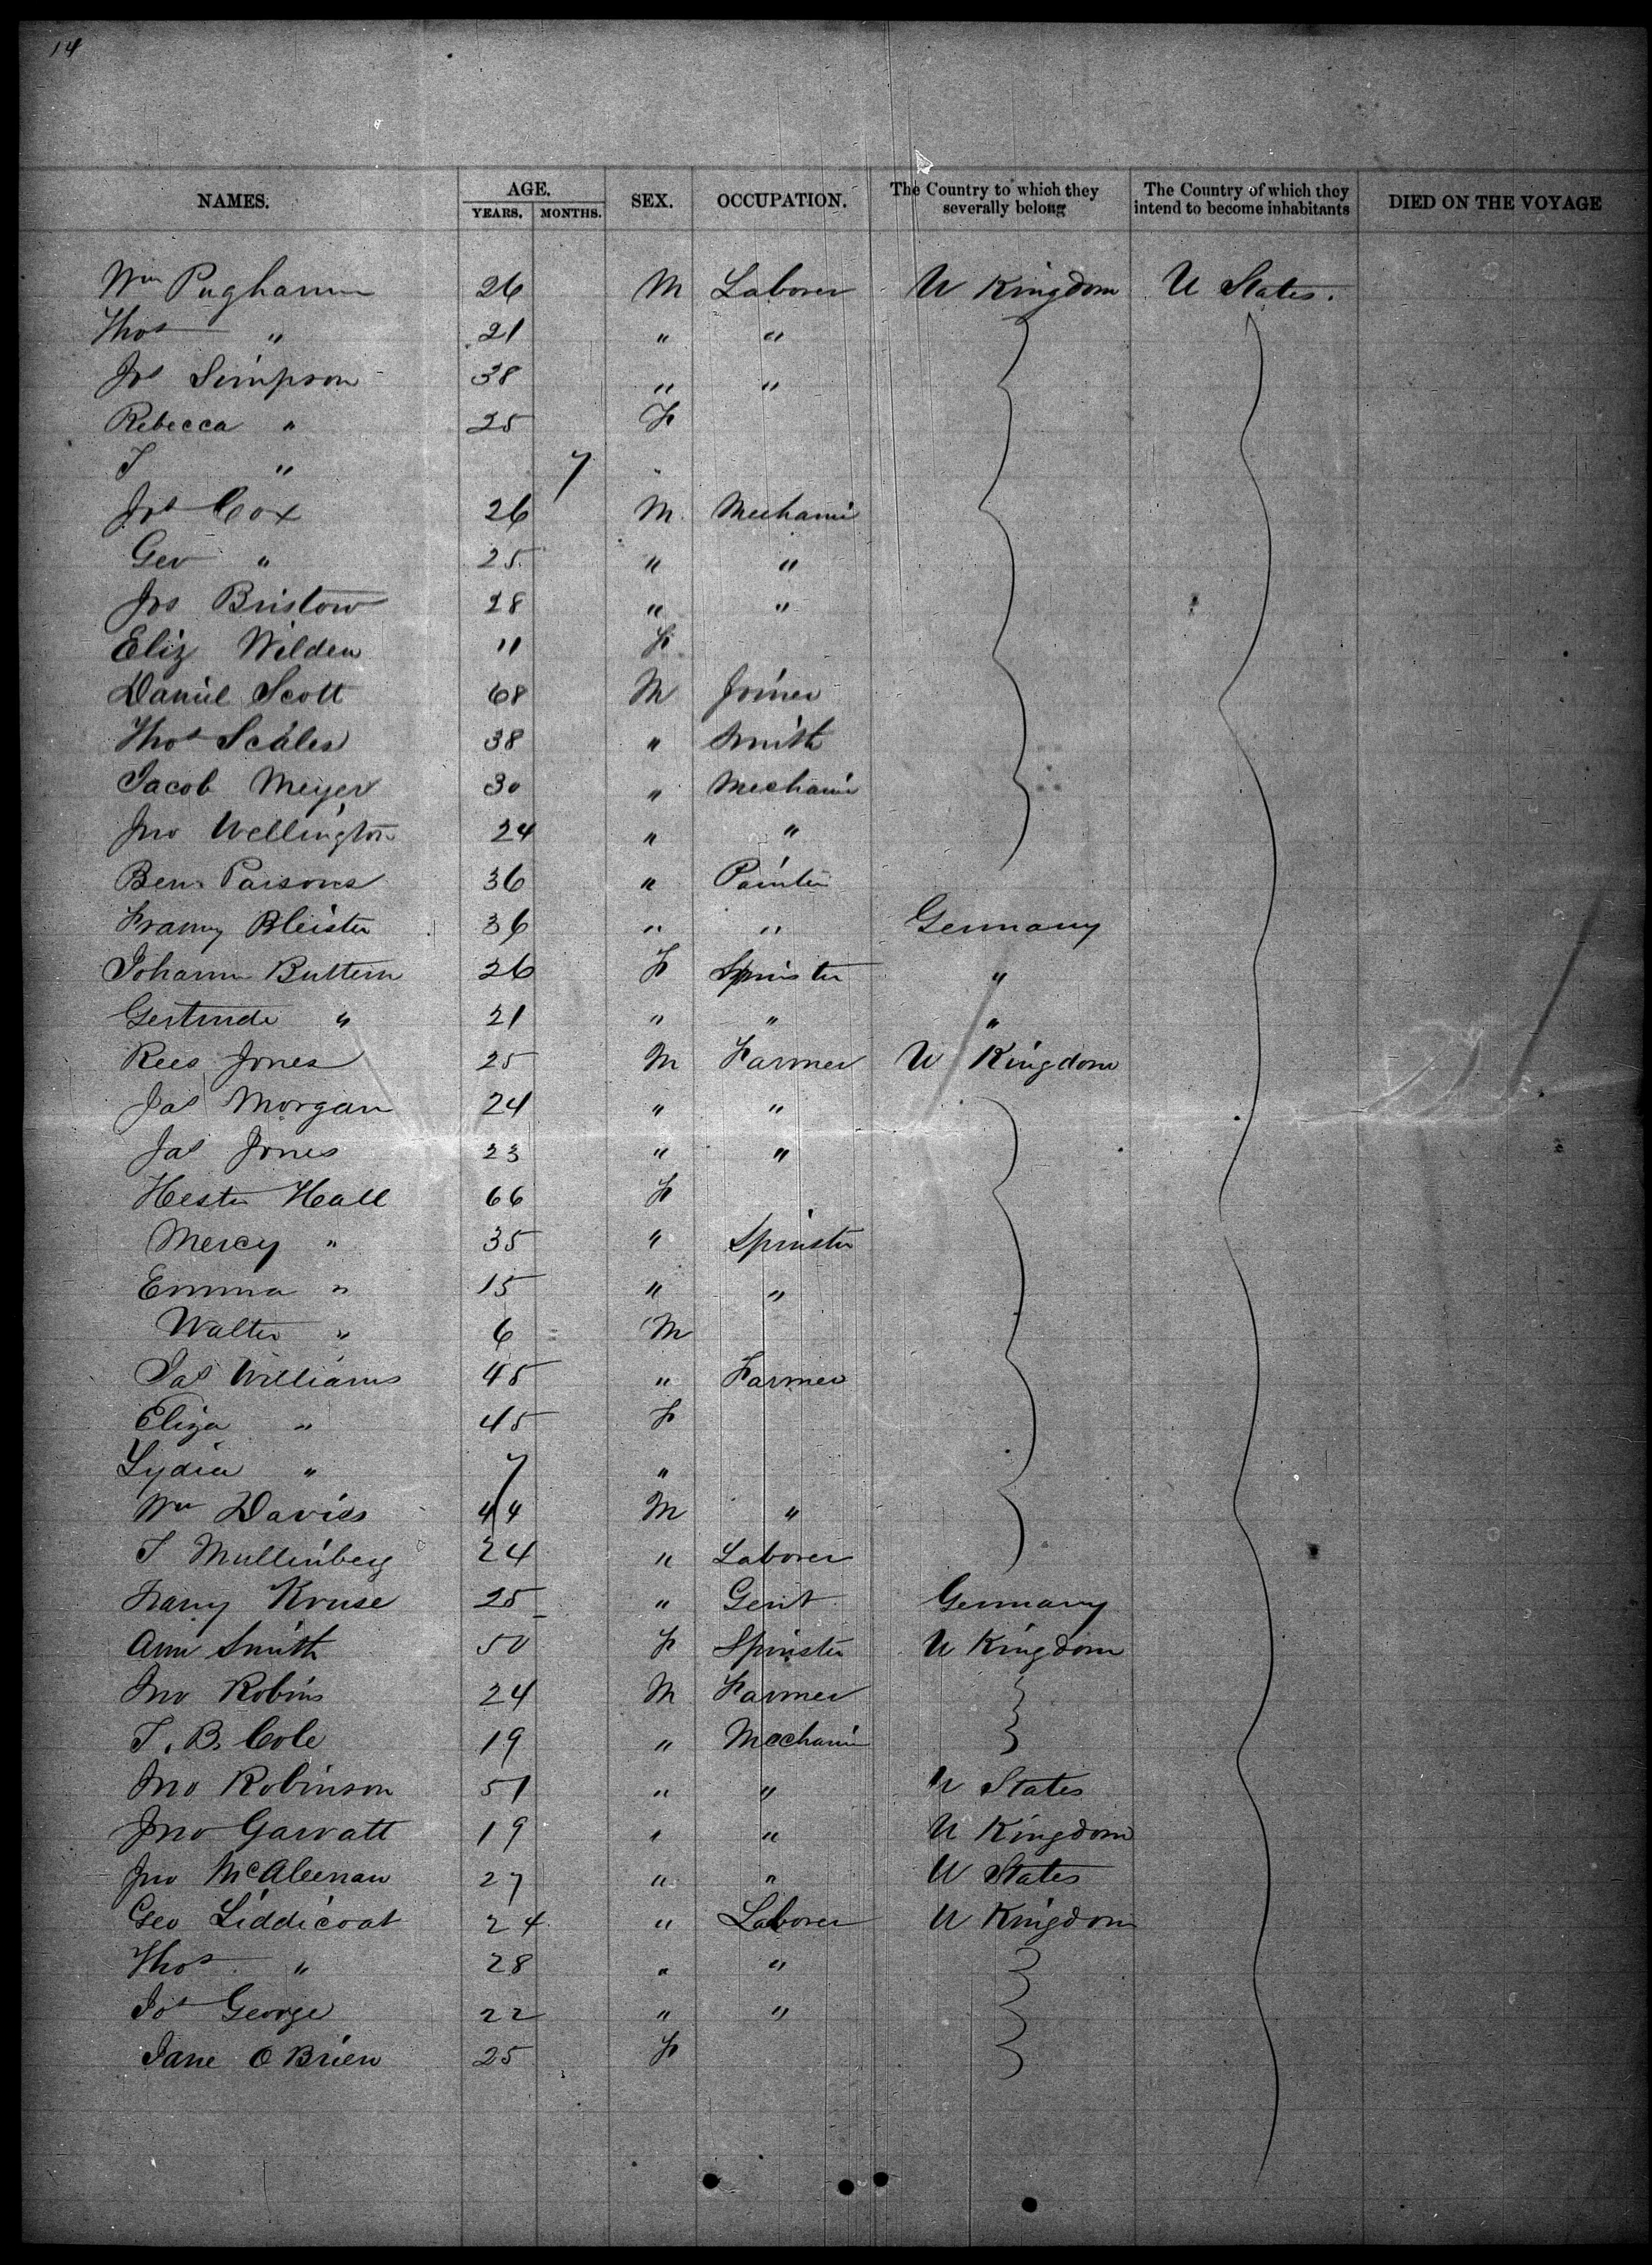 14
NAMES. AGE. YEARS. MONTHS. SEX. OCCUPATION. The Country to which they severally belong The Country of which they intend to become inhabitants DIED ON THE VOYAGE
Wm Pugham 26 M Laborer U Kingdom U States.
Thos " 21 " "
Jos Simpson 38 " "
Rebecca " 25 F
" 7 "
Jos Cox 26 M Mechanic
Geo " 25 " "
Jos Bristow 28 " "
Eliz Wilden 11 F
Daniel Scott 68 M Joiner
Thos Scales 38 " Smith
Jacob Meyer 30 " Mechanic
Jno Wellington 24 " "
Ben Parsons 36 " Painter
Bleister 36 " " Germany
Johann Buttern 26 F Spinster "
Gertrude " 21 " " "
Rees Jones 25 M Farmer U Kingdom
Jas Morgan 24 " "
Jas Jones 23 " "
Hester Hall 66 F
Mercy " 35 " Spinster
Emma " 15 " "
Walter " 6 M
Jas Williams 45 " Farmer
Eliza " 45 F
Lydia " 7 "
Wm Davies 44 M "
Mullinberg 24 " Laborer
Kruse 25 " Gent Germany
Ann Smith 50 F Spinster U Kingdom
Jno Robins 24 M Farmer
T. B. Cole 19 " Mechanic
Jno Robinson 51 " " U States
Jno Garvatt 19 " " U Kingdom
Jno McAleenan 27 " " U States
Geo Liddicoat 24 " Laborer U Kingdom
Thos " 28 " "
Jos George 22 " "
Jane O Brien 25 F